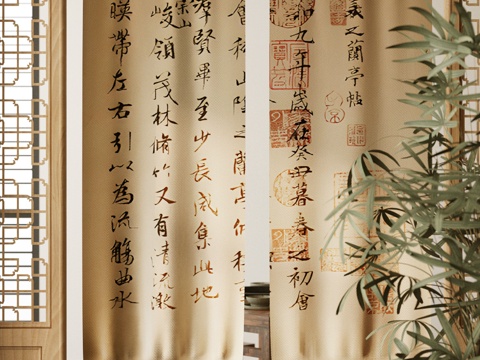 之蘭亭帖
九年歲在癸丑暮春之初會
會稽山陰之蘭亭
群賢畢至少長咸集此地
崇山
峻領茂林脩竹又有清流激
暎帶左右引以為流觴曲水